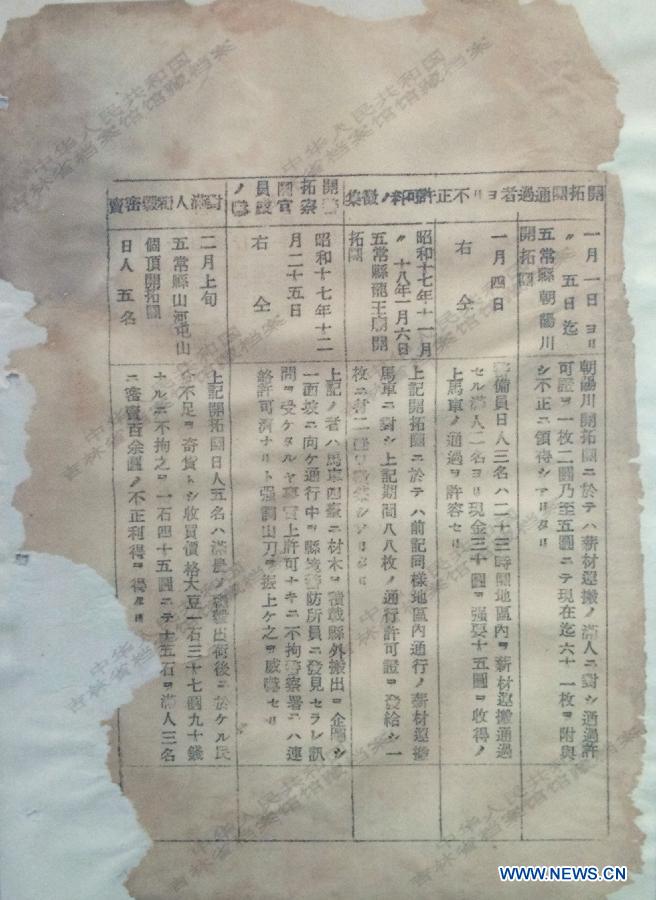 開拓團通過者ヨリ不正許可料ノ徵集
一月一日ヨリ
〃 五日迄
五常縣朝陽川
開拓團
朝陽川開拓團ニ於テハ薪材運搬ノ滿人ニ對シ通過許
可證ヲ一枚二圓乃至五圓ニテ現在迄六十一枚ヲ附與
シ不正ニ領得シアリタリ
一月四日
右 仝
警備員日人三名ハ二十三時頃地區內ヲ薪材運搬通過
セル滿人二名ヨリ現金三十圓ヲ强要十五圓ヲ收得ノ
上馬車ノ通過ヲ許容セリ
昭和十七年十一月
〃 十八年一月六日
五常縣龍王廟開
拓團
上記開拓團ニ於テハ前記同樣地區內通行ノ薪材運搬
馬車ニ對シ上記期間八八枚ノ通行許可證ヲ發給シ一
枚ニ付二圓
開拓團員ノ警察官ニ
昭和十七年十二
月二十五日
右 仝
上記ノ者ハ馬車四臺ニ材木ヲ積載縣外搬出ヲ企圖シ
一面坡ニ向ケ通行中ヲ縣境警防所員ニ發見セラレ訊
問ヲ受ケタルヤ事實上許可ナキニ不拘警察署ニハ連
絡許可濟ナリト强調山刀ヲ振上ケ之ヲ威嚇セリ
對滿人糧穀密賣
二月上旬
五常縣山河屯山
個頂開拓團
日人五名
上記開拓團日人五名ハ滿農ノ糧穀出荷後ニ於ケル民
食不足ヲ奇貨トシ收買價格大豆一石三十七圓九十錢
ナルニ不拘之ヲ一石四十五圓ニテ十五石ヲ滿人三名
ニ密賣百余圓ノ不正利得ヲ得タリ
中华人民共和国
吉林省档案馆馆藏档案
WWW.NEWS.CN